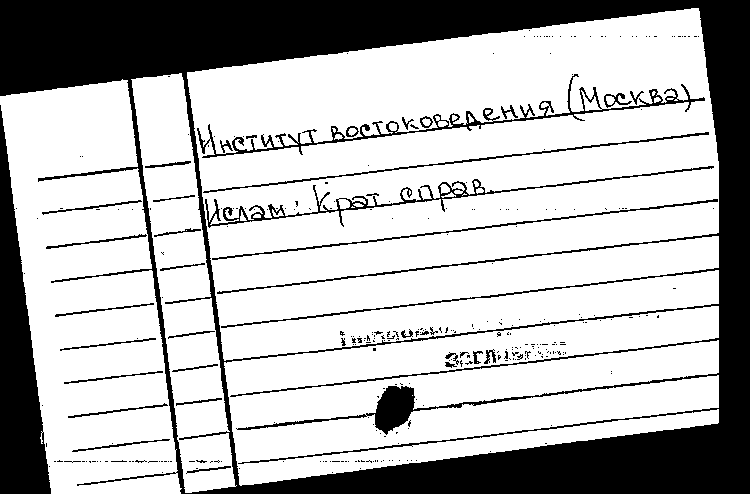 Институт востоковедения (Москва)
Ислам: Крат справ.